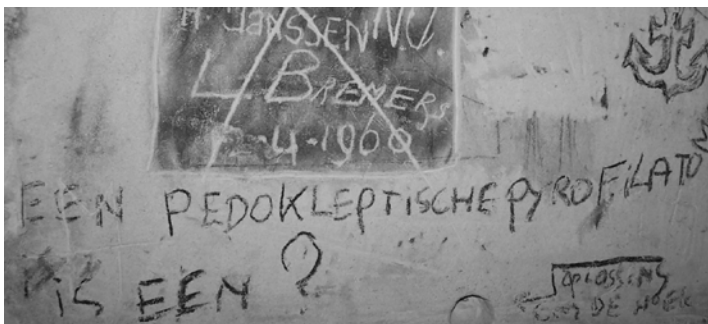 H. JANSSEN NU.
L. BREMERS
-4-1960
EEN PEDOKLEPTISCHEPYROFILATO
IS EEN ?
OPLOSSING
OM DE HOEK